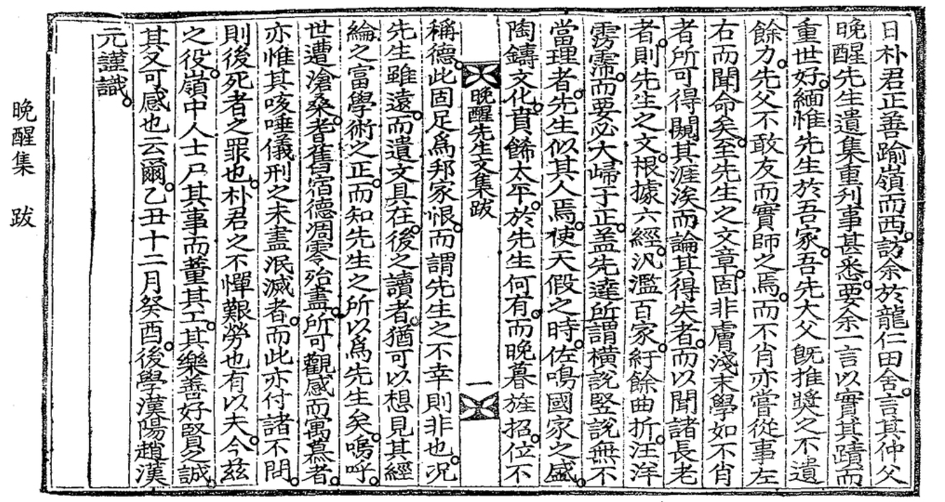 日朴君正善踰嶺而西。訪余於龍仁田舍。言其仲父
晚醒先生遺集重刊事甚悉。要余一言以實其蹟而
重世好。緬惟先生於吾家。吾先大父旣推奬之不遺
餘力。先父不敢友而實師之焉。而不肖亦嘗從事左
右而聞命矣。至先生之文章。固非膚淺末學如不肖
者所可得闚其涯涘而論其得失者。而以聞諸長老
者。則先生之文。根據六經。汎濫百家。紆餘曲折。汪洋
雱霈。而要必大歸于正。盖先達所謂橫說竪說無不
當理者。先生似其人焉。使天假之時。佐鳴國家之盛。
陶鑄文化。賁餙太平。於先生何有。而晚暮旌招。位不
晚醒先生文集跋 一
稱德。此固足爲邦家恨。而謂先生之不幸則非也。况
先生雖遠。而遺文具在。後之讀者。猶可以想見其經
綸之富學術之正。而知先生之所以爲先生矣。嗚呼。
世遭滄桑。耆舊宿德凋零殆盡。所可觀感而寓慕者。
亦惟其咳唾儀刑之未盡泯滅者。而此亦付諸不問。
則後死者之罪也。朴君之不憚艱勞也有以夫。今玆
之役。嶺中人士尸其事而董其工。其樂善好賢之誠。
其又可感也云爾。乙丑十二月癸酉。後學漢陽趙漢
元謹識。
晚醒集 跋